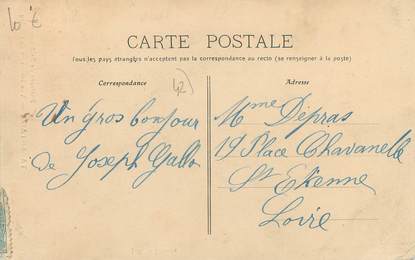 10 €
CARTE POSTALE
Tous les pays étrangers n'acceptent pas la correspondance au recto (se renseigner à la poste)
Correspondance
42
Adresse
Un gros bonjour
de Joseph Gallo
Mme Dépras
19 Place Chavanelle
St Etienne
Loire